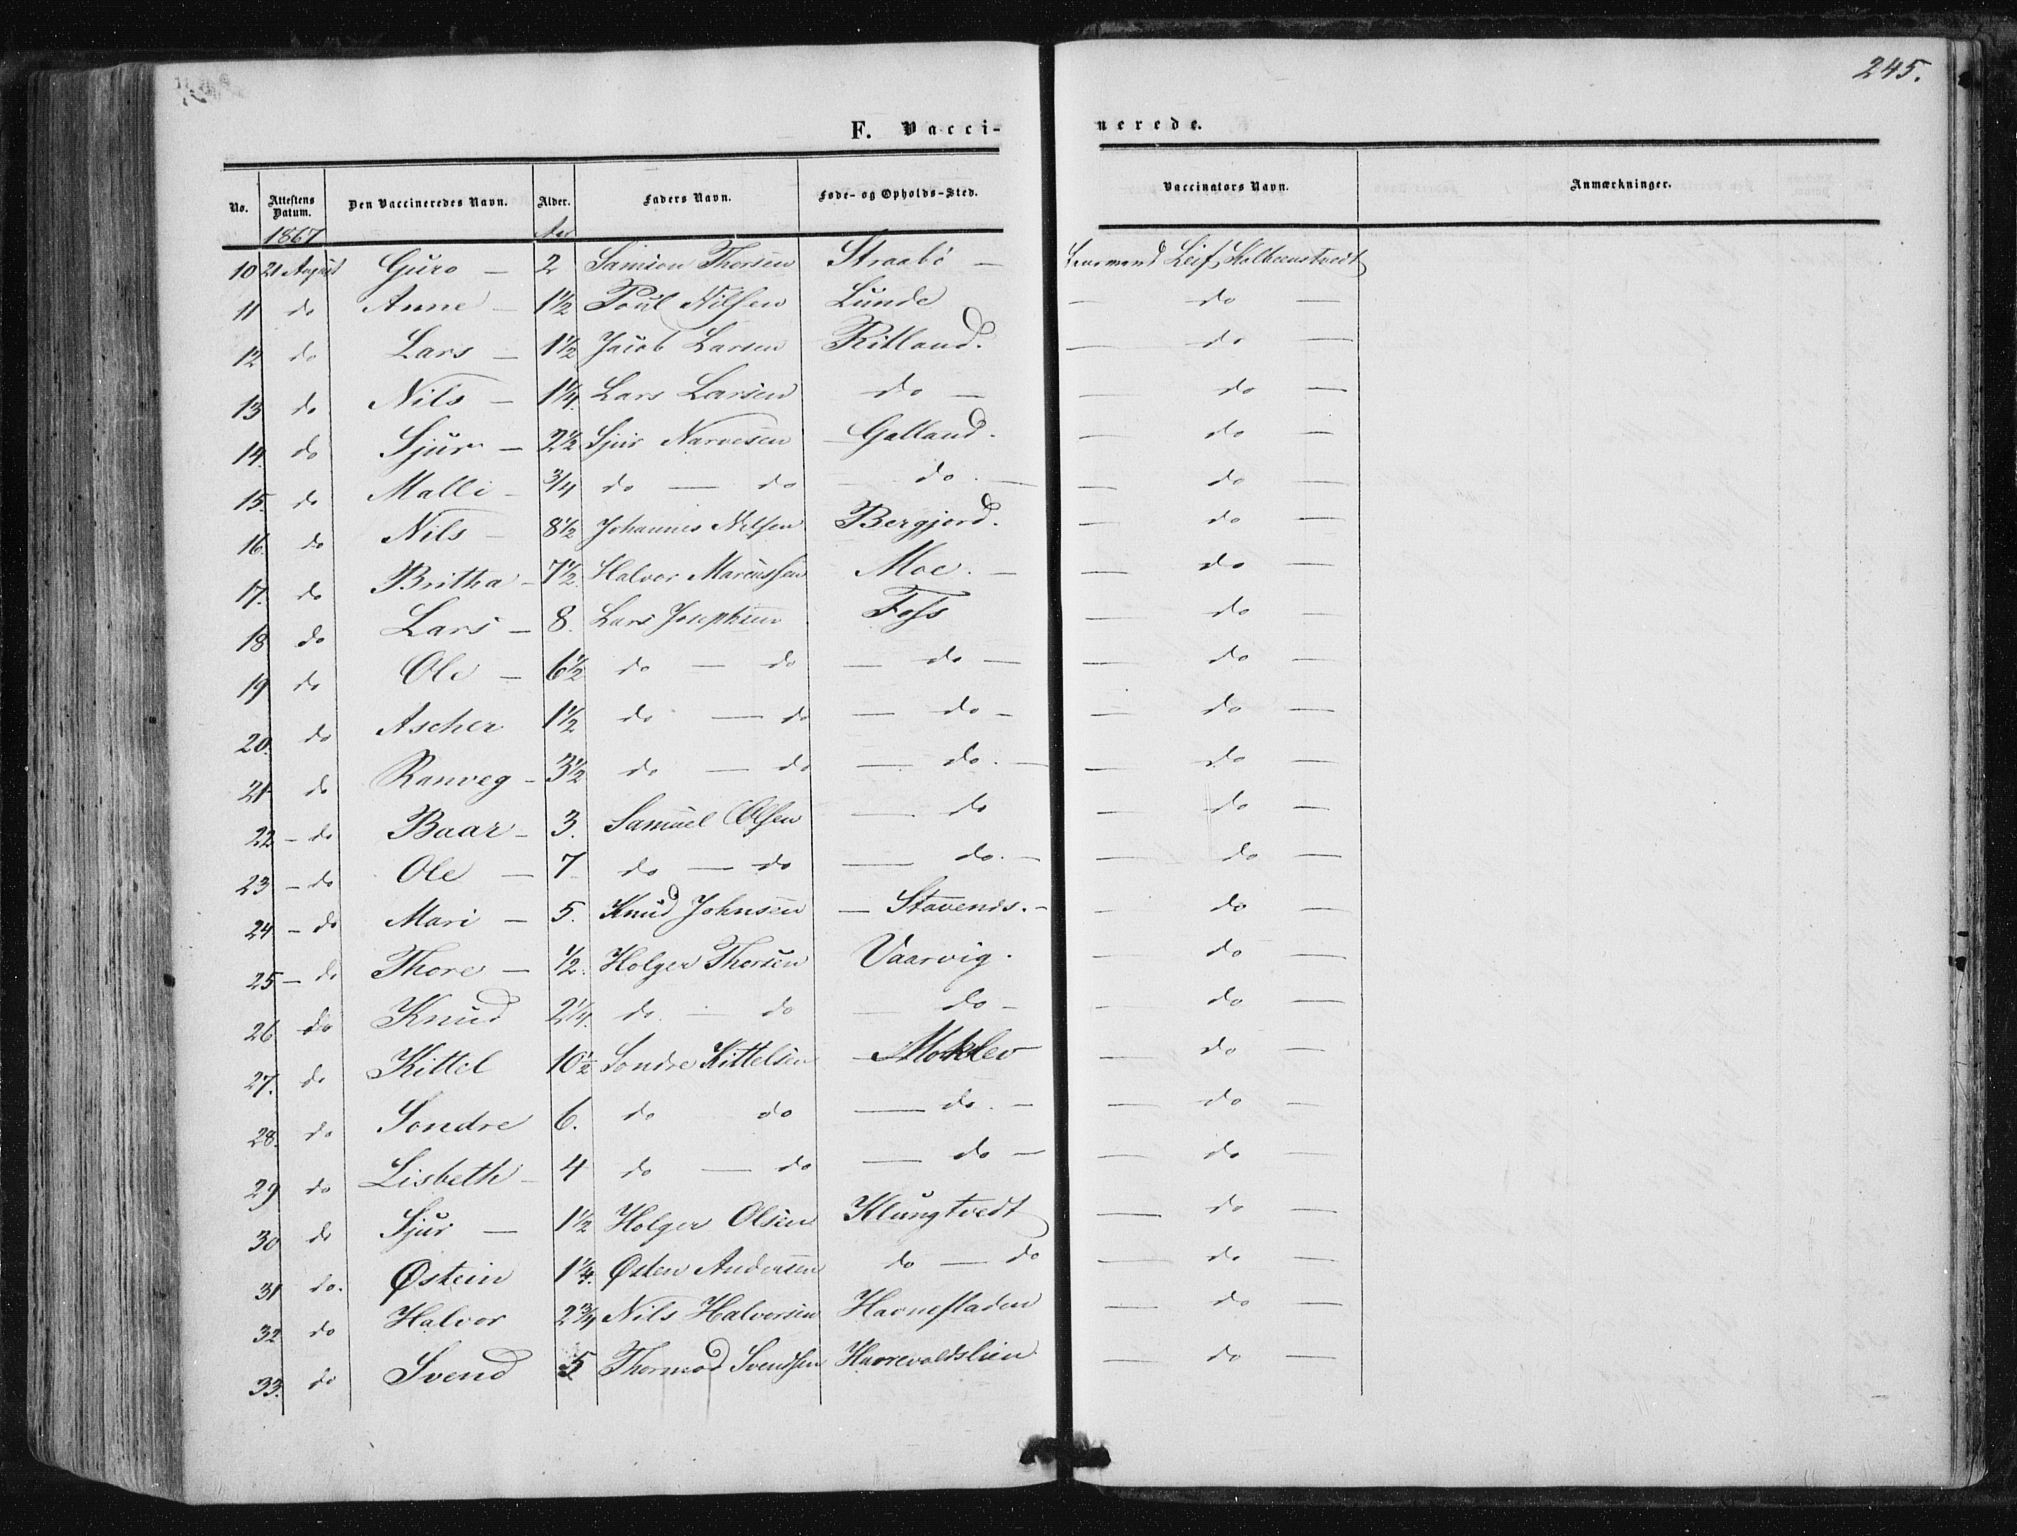 245.
F. Vacci-
nerede.
No. Attestens Datum. Den Vaccineredes Navn. Alder. Faders Navn. Føde- og Opholds-Sted. Vaccinators Navn. Anmærkninger.
1867 Aar
10 21 August Guro — 2 Samson Thorsen Straabö — Leif
11 do Anne — 1½ Poul Nilsen Lunde — do —
12 do Lars — 1½ Jacob Larsen Ritland. — do —
13 do Nils — 1¼. Lars Larsen do — — do —
14. do Sjur — 2½ Sjur Narvesen Galland. — do —
15. do Malli — ¾ do — do — do. — — do —
16. do Nils — 8½ Johannes Nilsen Bergjord. — do —
17. do Britha — 7½. Halvor Marcussen Moe. — — do —
18 do Lars — 8. Lars Josephsen Foss — do —
19 do Ole — 6½ do — do — do — — do —
20. do Ascher 1½ do — do — do — — do —
21 do Ranveg — 3½ do — do — do. — — do —
22 — do Baar — 3. Samuel Olsen — do — do —
23 — do Ole — 7. do — do — do. — — do —
24 — do Mari — 5. Knud Johnsen — Stavenæs. — — do —
25 — do Thore — ½. Holger Thorsen Vaarvig. — do —
26 do Knud 2¼. do. — do — do — — do —
27. do Kittel 10½ Sondre Kittelsen — Moklev — do —
28. do Sondre 6. do do — do. — — do —
29 do Lisbeth — 4 do — do — do — — do —
30 do Sjur — 1½ Holger Olsen Klungtvedt — do —
31 do. Østein 1¼. Østen Andersen do — do — do —
32 do Halvor 2¾ Nils Halvorsen Havnefladen — do —
33. do Svend 5 Thormod Svendsen Haarevoldslien — do —